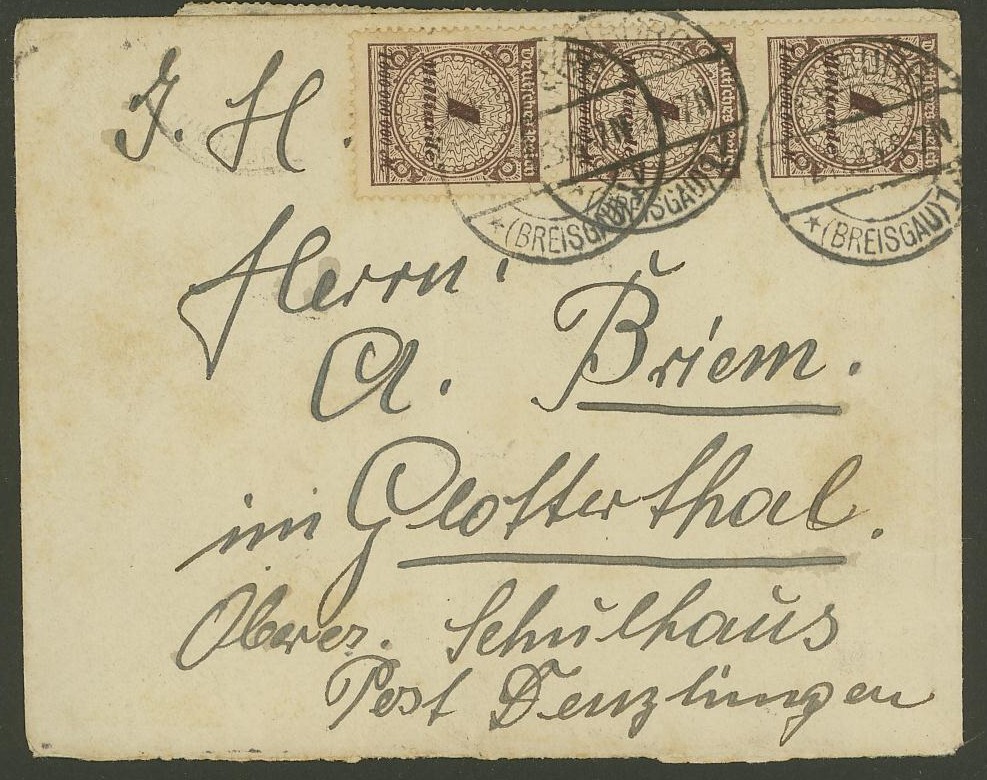 J. H.
1 Milliarde Deutsches Reich
1 Milliarde Deutsches Reich
1 Milliarde Deutsches Reich
*(BREISGAU)
*(BREISGAU)1
Herrn:
A. Briem.
im Glotterthal.
Oberes. Schulhaus
Post Denzlingen